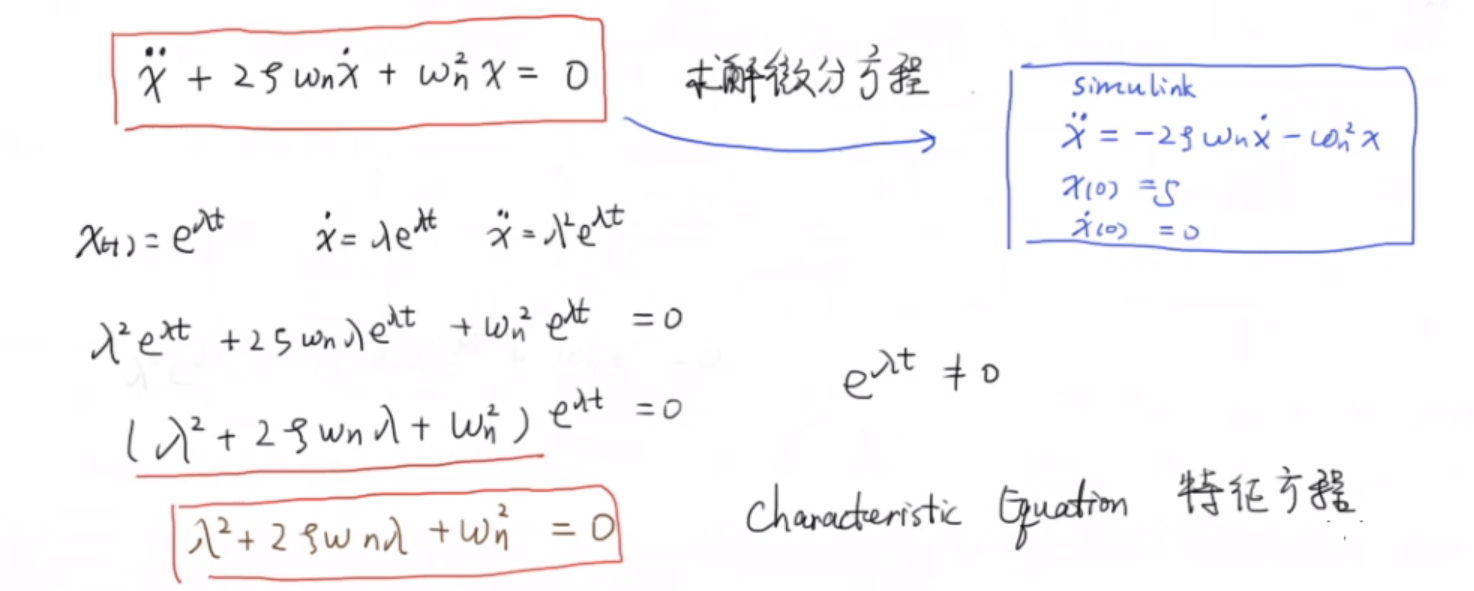 ẍ + 2ζωnẋ + ωn²x = 0
求解微分方程
simulink
ẍ = -2ζωnẋ - ωn²x
x(0) = 5
ẋ(0) = 0
x(t) = e^λt  ẋ = λe^λt  ẍ = λ²e^λt
λ²e^λt + 2ζωnλe^λt + ωn²e^λt = 0
e^λt ≠ 0
(λ² + 2ζωnλ + ωn²) e^λt = 0
λ² + 2ζωnλ + ωn² = 0
Characteristic Equation 特征方程